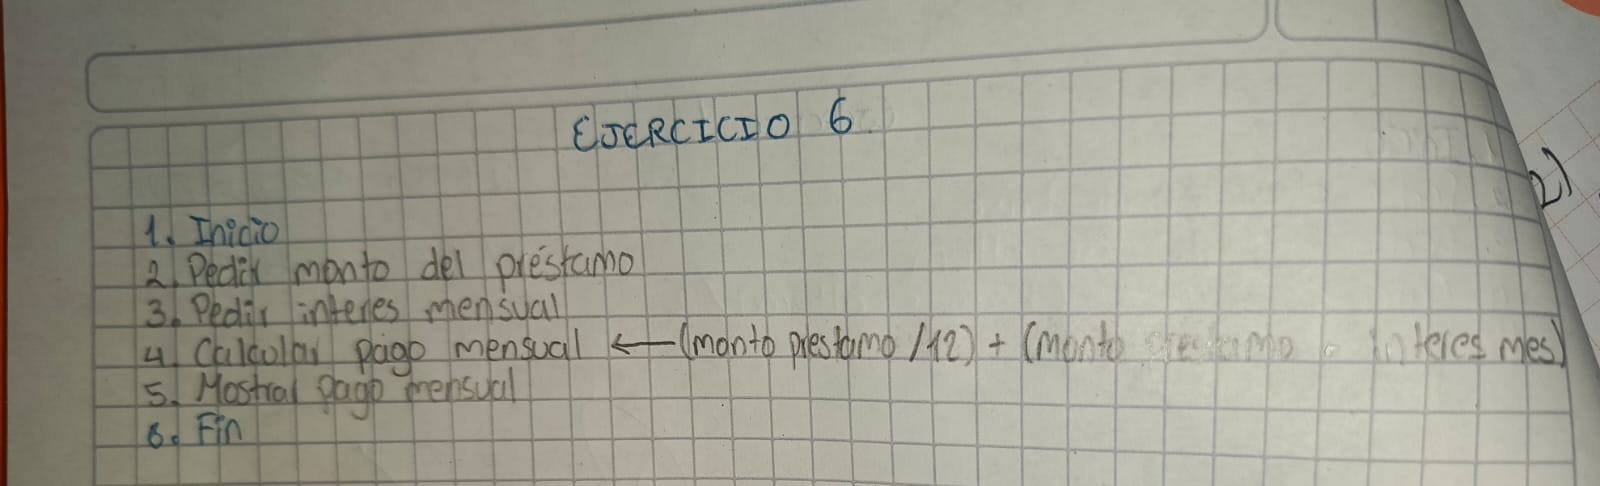 EJERCICIO 6
1. Inicio
2. Pedir monto del préstamo
3. Pedir interes mensual
4. Calcular pago mensual ← (monto prestamo /12) + (monto prestamo interes mes)
5. Mostrar pago mensual
6. Fin
2)